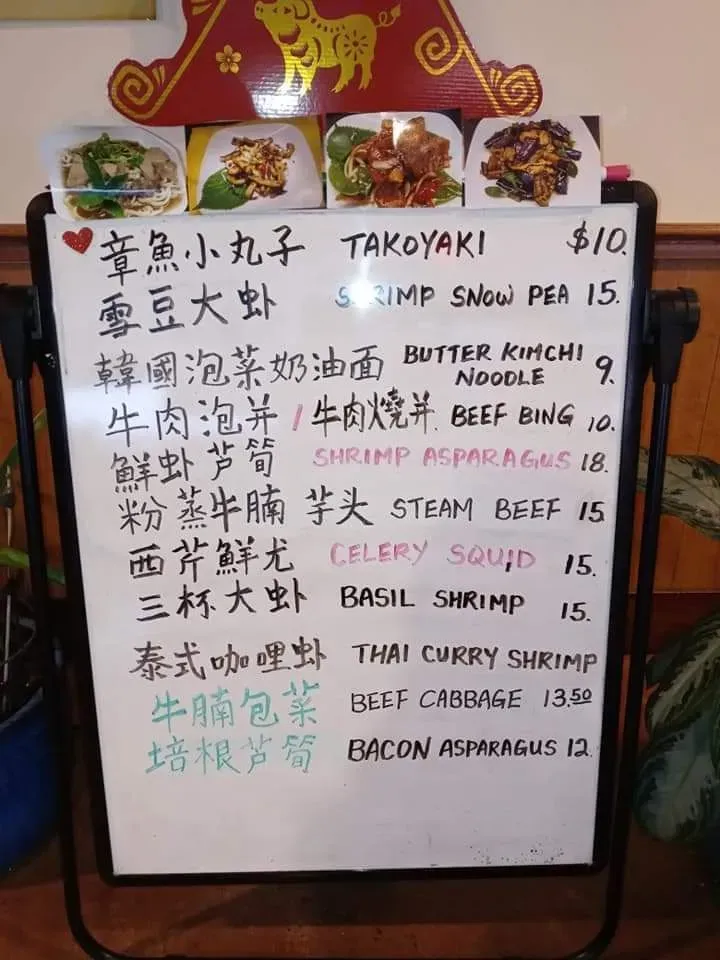 章魚小丸子 TAKOYAKI $10.
雪豆大虾 SHRIMP SNOW PEA 15.
韓國泡菜奶油面 BUTTER KIMCHI NOODLE 9.
牛肉泡并 / 牛肉燒并. BEEF BING 10.
鮮虾芦筍 SHRIMP ASPARAGUS 18.
粉蒸牛腩 芋头 STEAM BEEF 15
西芹鮮尤 CELERY SQUID 15.
三杯大虾 BASIL SHRIMP 15.
泰式咖哩虾 THAI CURRY SHRIMP
牛腩包菜 BEEF CABBAGE 13.50
培根芦筍 BACON ASPARAGUS 12